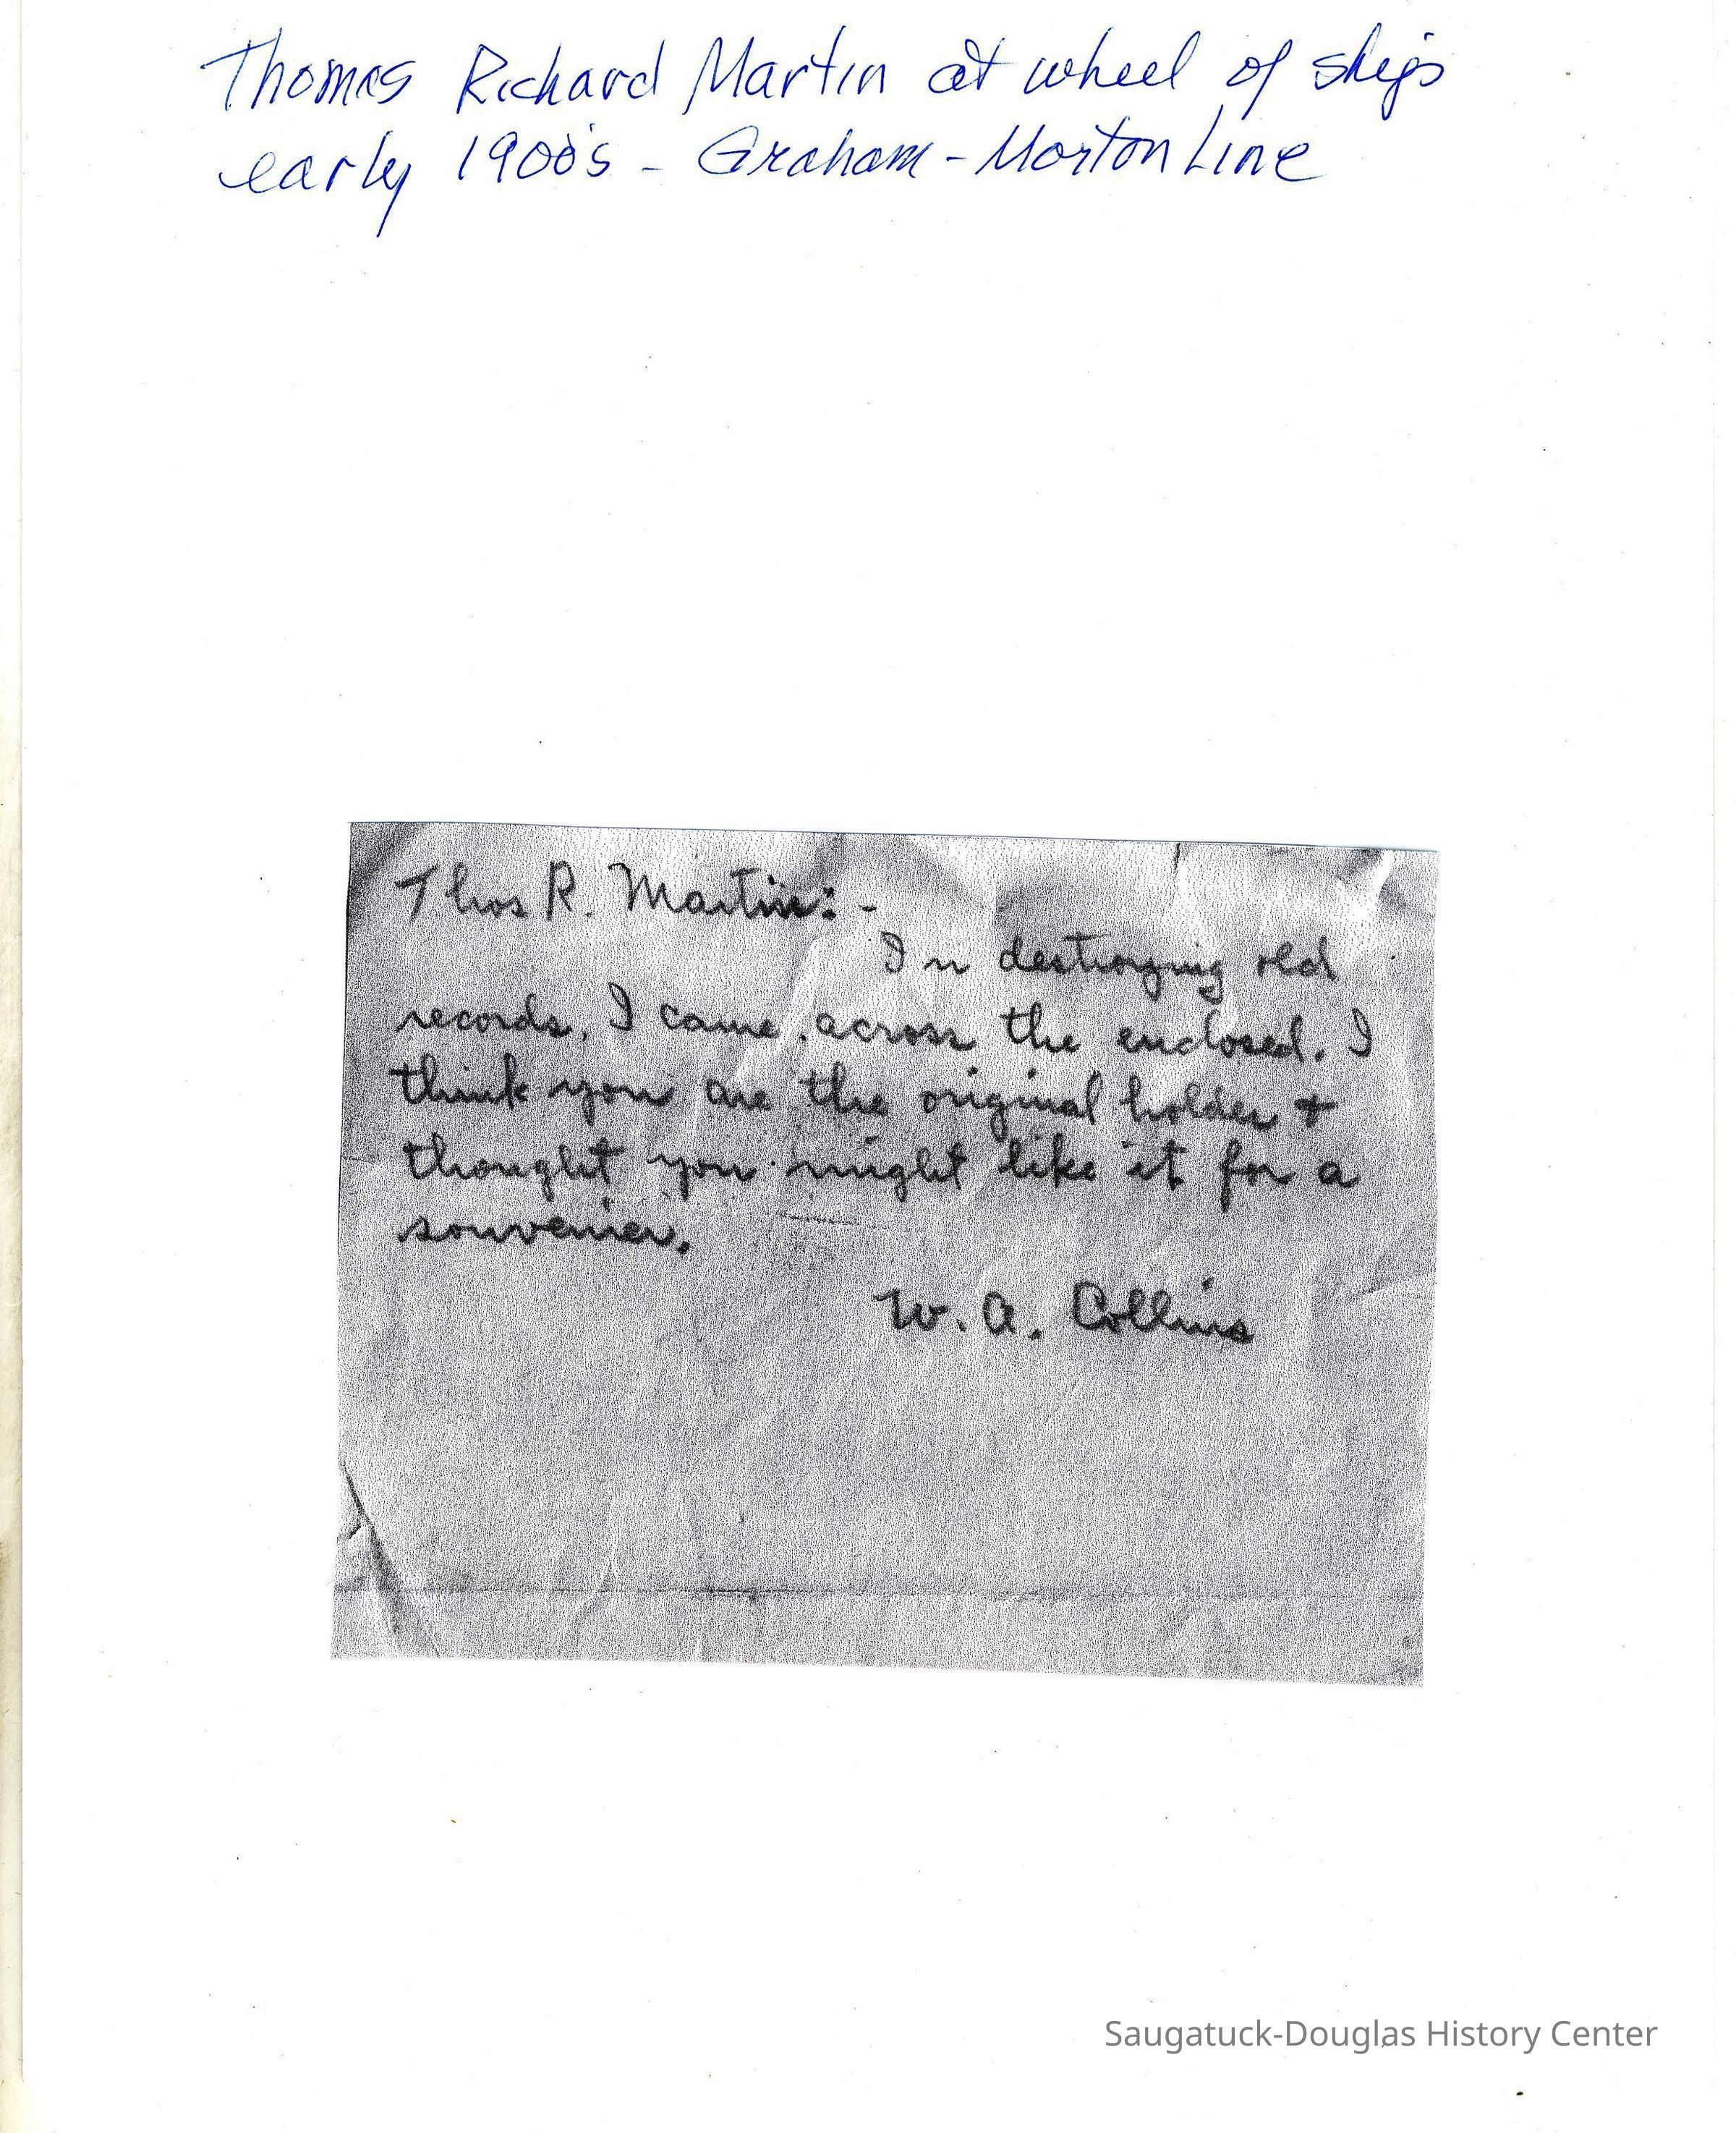 Thomas Richard Martin at wheel of ships
early 1900's - Graham-Morton Line
Thos R. Martin: -
In destroying old
records, I came across the enclosed. I
think you are the original holder &
thought you might like it for a
souvenier.
W. A. Collins
Saugatuck-Douglas History Center